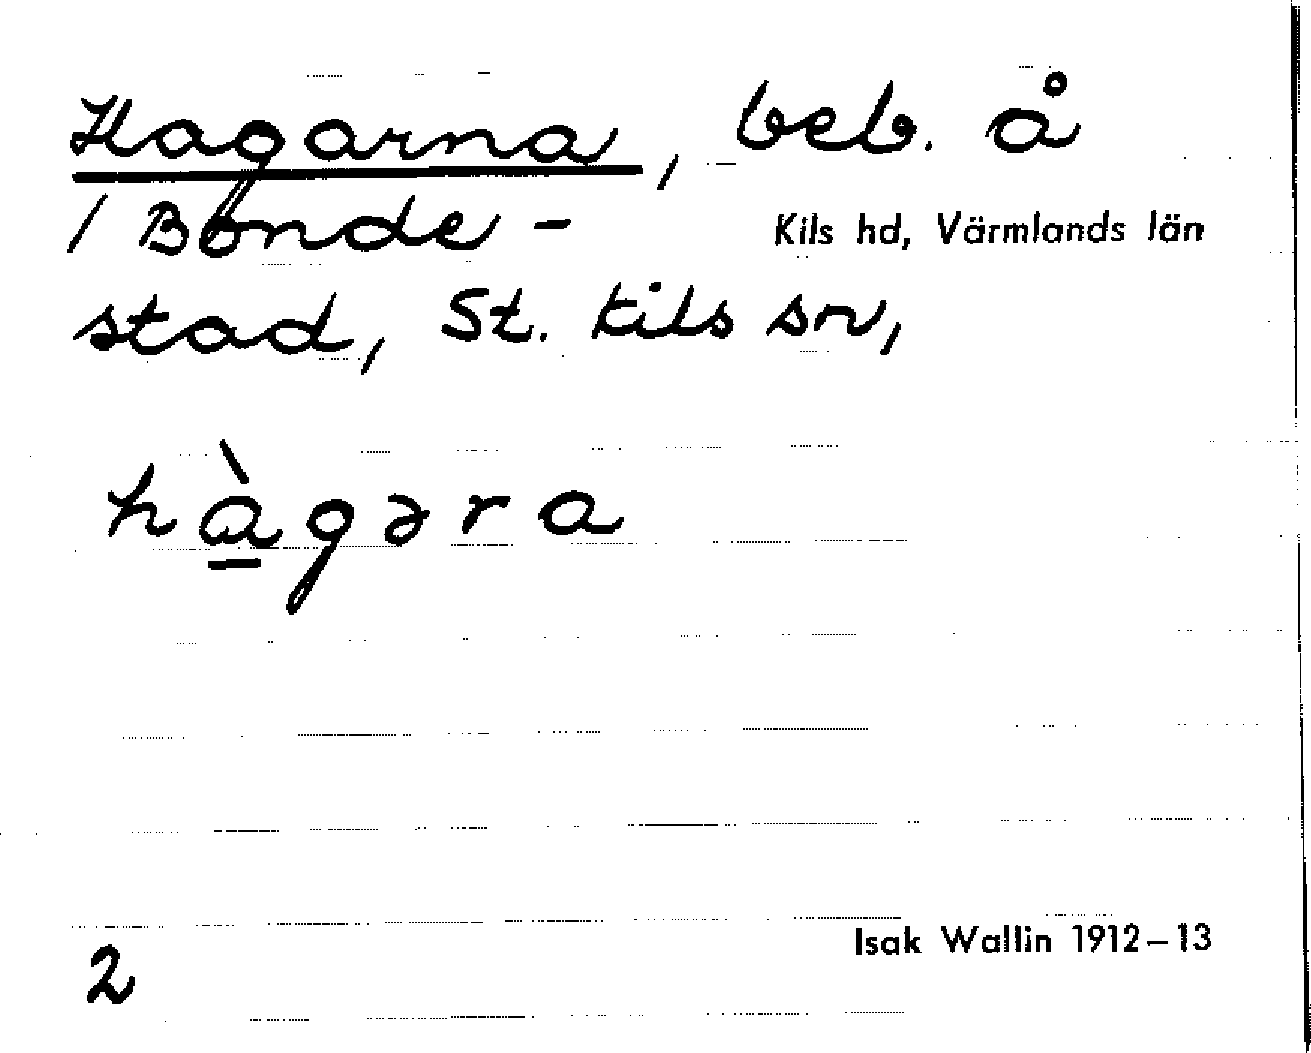 Hagarna, beb. å
/ Bonde-
Kils hd, Värmlands län
stad, St. Kils sn,
hàgəra
2
Isak Wallin 1912–13